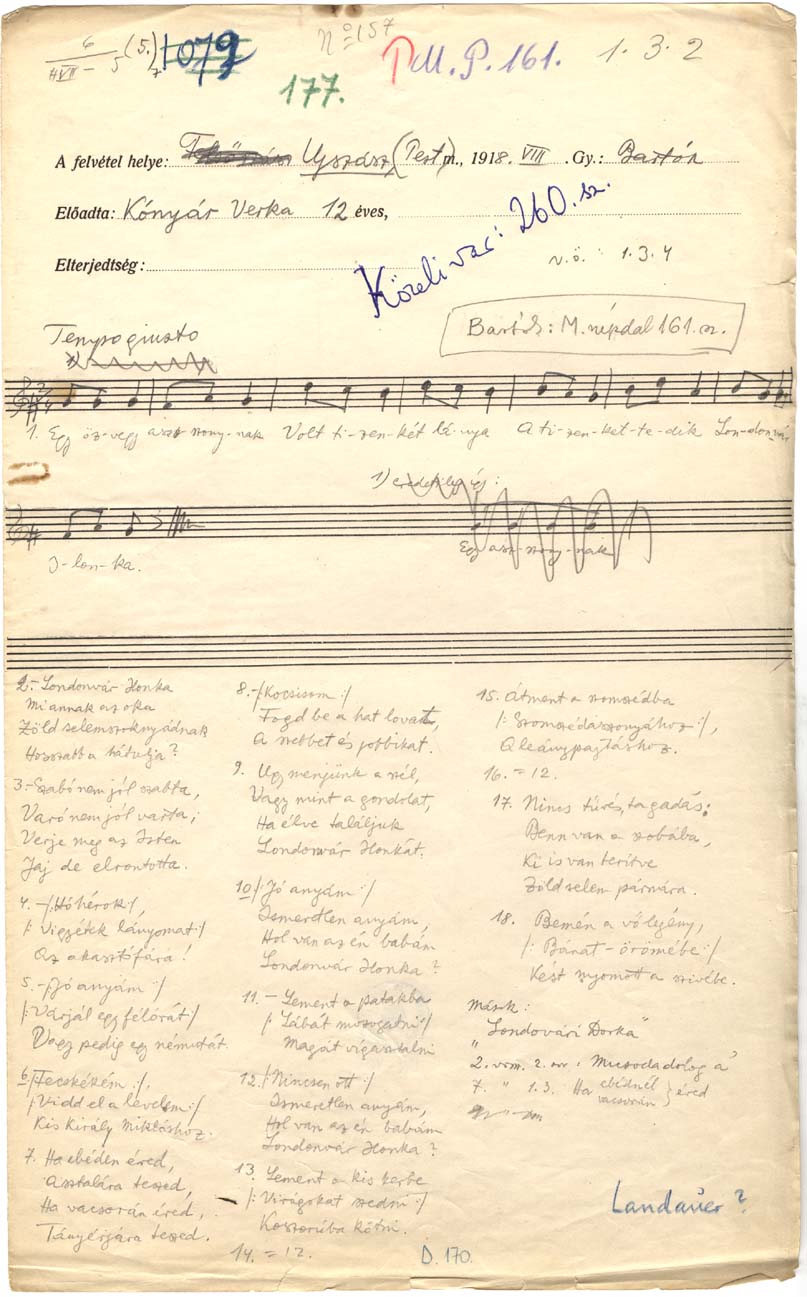 6 (5.) 1079 No 157 M.P. 161. 1.3.2
HVII – 5 7
177.
A felvétel helye: Ujszász (Pest) m., 1918. VIII .Gy.: Bartók
Előadta: Kónyár Verka 12 éves,
Közeli var: 260. sz.
Elterjedtség: v.ö. 1.3.4
Tempo giusto
Bartók: M. népdal 161. sz.
1. Egy öz-vegy asz-szony-nak Volt ti-zen-két lá-nya A ti-zen-ket-te-dik Lon-don-vár
1) eredetileg és:
Egy asz-szony-nak
I-lon-ka.
2.– Londonvár Ilonka
Mi annak az oka
Zöld selemszoknyádnak
Hosszabb a hátulja?
3.– Szabó nem jól szabta,
Varó nem jól varta,
Verje meg az Isten
Jaj de elrontotta.
4. –/: Hóhérok :/,
/: Vigyétek lányomat :/
Az akasztófára!
5. –/: Jó anyám :/
/: Várjál egy félórát :/
Vagy pedig egy néműtát.
6. /: Fecskékém :/,
/: Vidd el a levelem :/
Kis Király Miklóshoz.
7. Ha ebéden éred,
Asztalára teszed,
Ha vacsorán éred,
Tányérjára teszed.
8. –/: Kocsisom :/
Fogd be a hat lovat,
A szebbet és jobbikat.
9. Ugy menjünk a szél,
Vagy mint a gondolat,
Ha élve találjuk
Londonvár Ilonkát.
10. /: Jó anyám :/
Ismeretlen anyám,
Hol van az én babám
Londonvár Ilonka?
11. – Lement a patakba
/: Lábát mozogatni :/
Magát vigasztalni
12. /: Nincsen ott :/
Ismeretlen anyám,
Hol van az én babám
Londonvár Ilonka?
13. Lement a kis kerbe
/: Virágokat szedni :/
Koszorúba kötni.
14. = 12.
15. Átment a szomszédba
/: Szomszédasszonyához :/,
A leánypajtáshoz.
16. = 12.
17. Nincs tűrés, tagadás:
Benn van a szobába,
Ki is van terítve
Zöld selem párnára.
18. Bemén a vőlegény,
/: Bánat-örömébe :/
Kést nyomott a szivébe.
Mások:
"Londovári Dorka"
2. vsz. 2. sor: Micsoda dolog a'
7. " 1.3. Ha ebédnél
vacsorán } éred
Landauer?
D. 170.